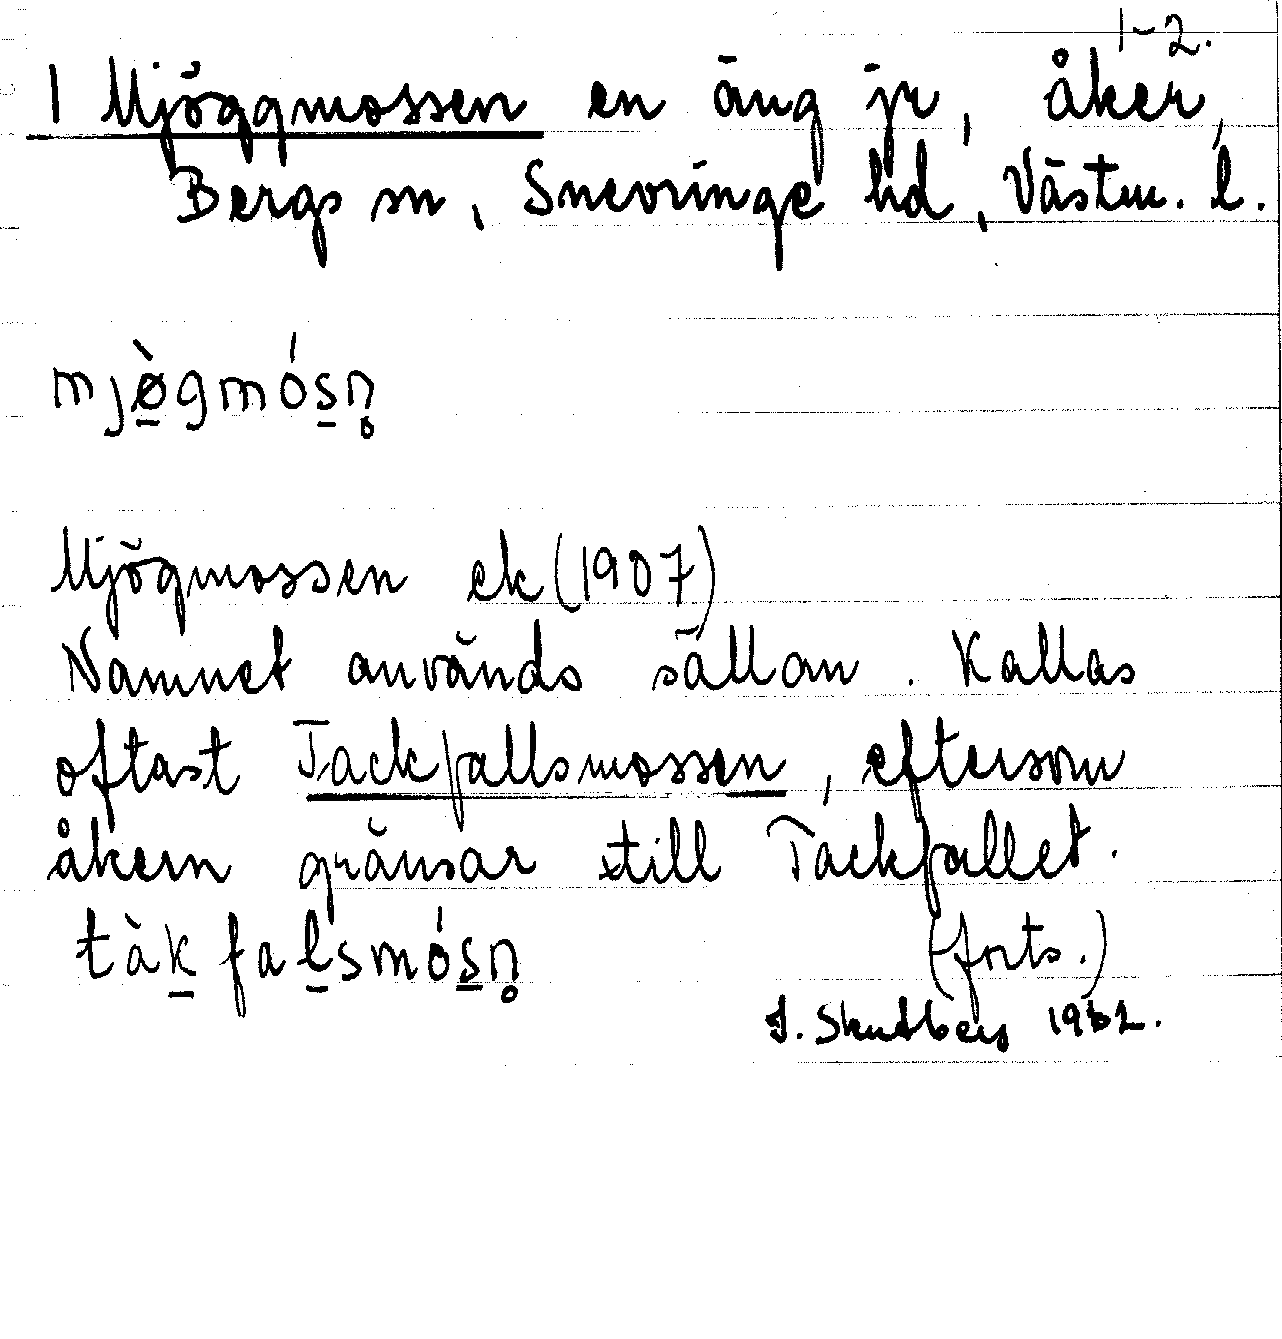 1-2.
1 Mjöggmossen en äng jr, åker,
Bergs sn, Snevringe hd, Västm. l.
mjø̀gmósn̥
Mjögmossen ek (1907)
Namnet används sällan. Kallas
oftast Tackfallsmossen, eftersom
åkern gränsar till Tackfallet.
tàkfalsmósn̥
(forts.)
J. Skutberg 1962.